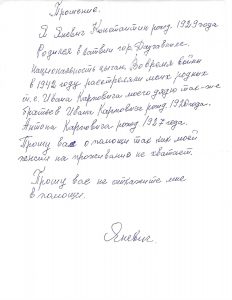 Прошение.
Я Яневич Константин рожд 1929 года
Родился в Латвии гор. Даугавпилс.
национальность цыган. Во время войны
в 1942 году расстреляли моих родных
т. е. Ивана Карловича моего дядю так-же
братьев Ивана Карловича рожд 1920 года.
Антона Карловича рожд 1927 года.
Прошу вас о помощи так как моей
пенсии на проживание не хватает.
Прошу вас не откажите мне
в помощи.
Яневич